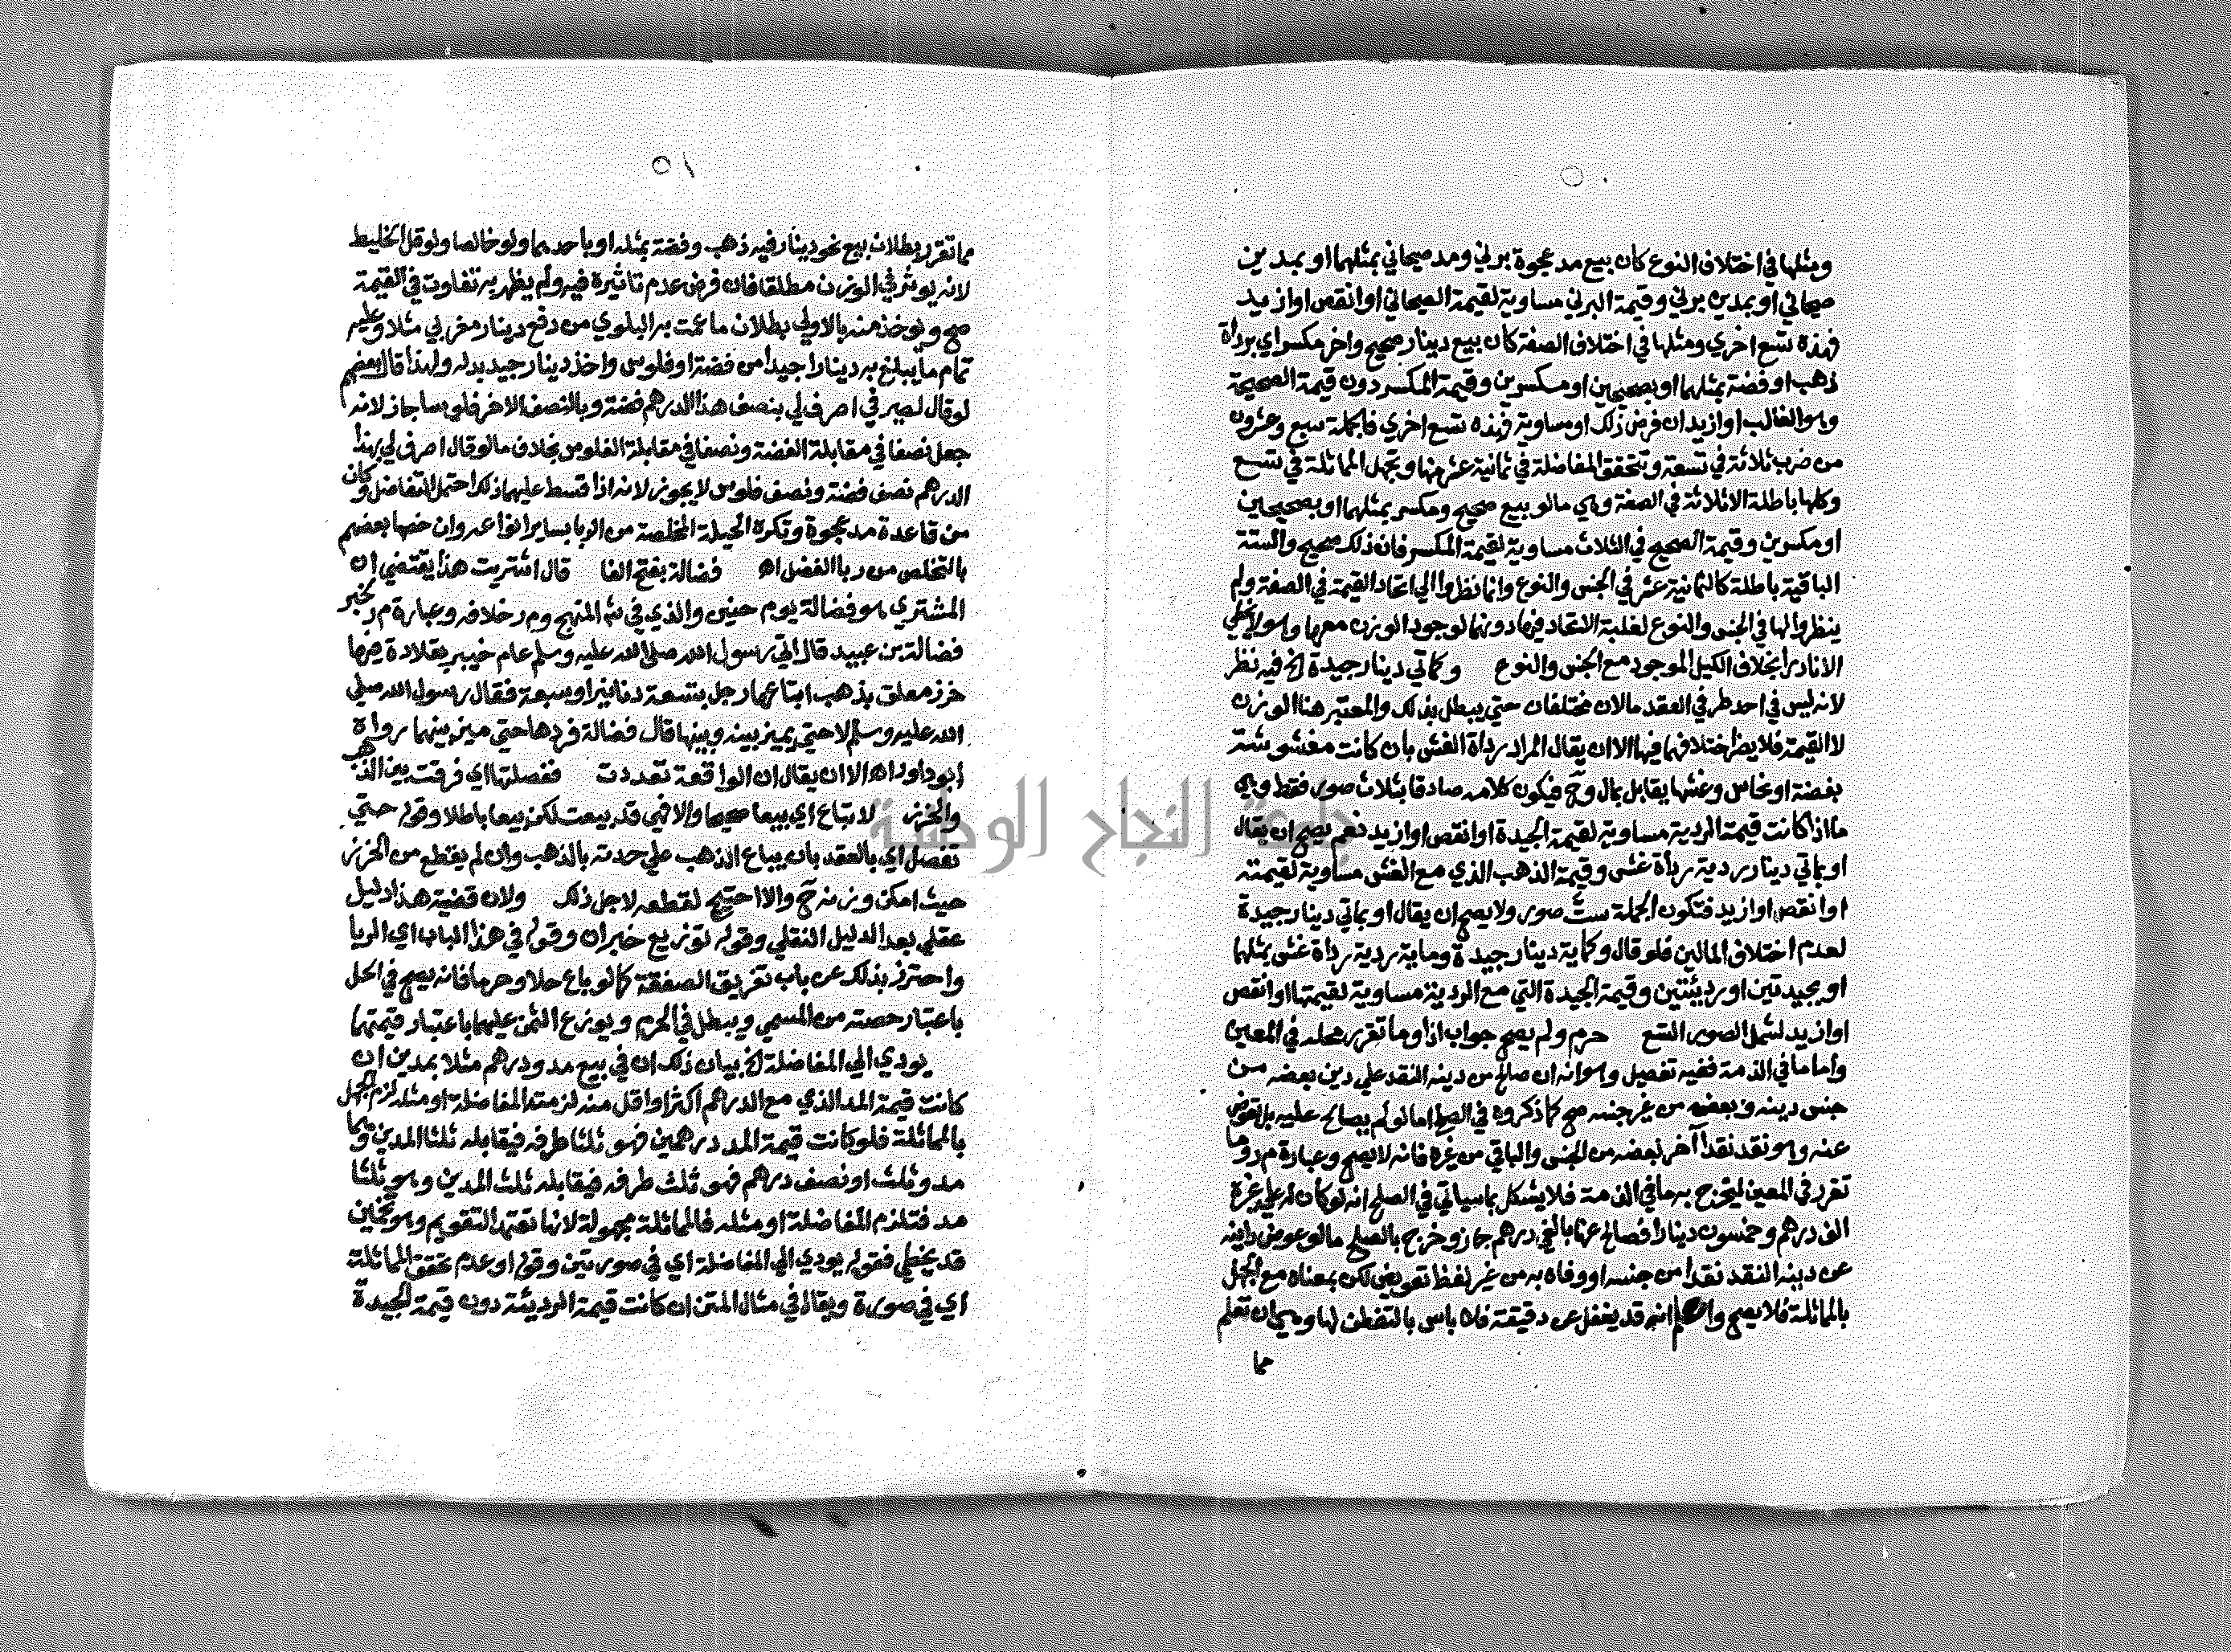 ٥٠
ومثلها في اختلاف النوع كان بيع مد عجوة برني ومد صيحاني بمثلهما او بمدين
صيحاني او بمدين برني وقيمة البرني مساوية لقيمة الصيحاني او انقص او ازيد
فهذه تسع اخري ومثلها في اختلاف الصفة كان بيع دينار صحيح واخر مكسر اي برداة
ذهب او فضة بمثلهما او بصحيحين او مكسرين وقيمة المكسر دون قيمة الصحيحة
وهو الغالب او ازيد ان فرض ذلك او مساوية فهذه تسع اخري فالجملة سبع وعشرون
من ضرب ثلاثة في تسعة وتتحقق المفاضلة في ثمانية عشر منها وتجهل المماثلة في تسع
وكلها باطلة الا ثلاثة في الصفة وهي مالو بيع صحيح ومكسر بمثلهما او بصحيحين
او مكسرين وقيمة الصحيح في الثلاث مساوية لقيمة المكسر فان ذلك صحيح والستة
الباقية باطلة كالثمانية عشر في الجنس والنوع وانما نظروا الي اتحاد القيمة في الصفة ولم
ينظروا لها في الجنس والنوع لغلبة الاتحاد فيها دونهما لوجود الوزن معها وهو لا يخطي
الا نادرا بخلاف الكيل الموجود مع الجنس والنوع وكماتي دينار جيدة الخ فيه نظر
لانه ليس في احد طرفي العقد مالان مختلفان حتي يبطل بذلك والمعتبر هنا الوزن
لا القيمة فلا يضر اختلافهما فيها الا ان يقال المراد رداة الغش بان كانت مغشوشة
بفضة او نحاس وغشها يقابل بمال وح فيكون كلامه صادقا بثلاث صور فقط وهي
ما اذا كانت قيمة الردية مساوية لقيمة الجيدة او انقص او ازيد نعم يصح ان يقال
او بماتي دينار ردية رداة غش وقيمة الذهب الذي مع الغش مساوية لقيمته
او انقص او ازيد فتكون الجملة ست صور ولا يصح ان يقال او بماتي دينار جيدة
لعدم اختلاف المالين فلو قال وكماية دينار جيدة وماية ردية رداة غش بمثلها
او بجيدتين او رديئتين وقيمة الجيدة التي مع الردية مساوية لقيمتها او انقص
او ازيد لشمل الصور التسع حرم ولم يصح جواب اذا وما تقرر محله في المعين
واما ما في الذمة ففيه تفصيل وهو انه ان صالح من دينه النقد علي دين بعضه من
جنس دينه وبعضه من غير جنسه صح كما ذكروه في الصلح اما لو لم يصالح عليه بل تعوض
عنه وهو نقد نقدا آخر بعضه من الجنس والباقي من غيره فانه لا يصح وعبارة م ر وما
تقرر في المعين ليخرج به ما في الذمة فلا يشكل بما سياتي في الصلح انه لو كان له علي غيره
الف درهم وخمسون دينارا فصالح عنها بالفي درهم جاز وخرج بالصلح مالو عوض داينه
عن دينه النقد نقدا من جنسه او وفاه به من غير لفظ تعويض لكن بمعناه مع الجهل
بالمماثلة فلا يصح واعلم انه قد يغفل عن دقيقة فلا باس بالتفطن لها وهي ان تعلم
مما
٥١
مما تقرر بطلان بيع نحو دينار فيه ذهب وفضة بمثله او باحدهما ولو خالصا ولو قل الخليط
لانه يوثر في الوزن مطلقا فان فرض عدم تاثيره فيه ولم يظهر به تفاوت في القيمة
صح ويوخذ منه بالاولي بطلان ما عمت به البلوي من دفع دينار مغربي مثلا وعليه
تمام ما يبلغ به دينارا جيدا من فضة او فلوس واخذ دينار جيد بدله ولهذا قال بعضهم
لو قال لصيرفي اصرف لي بنصف هذا الدرهم فضة وبالنصف الاخر فلوسا جاز لانه
جعل نصفا في مقابلة الفضة ونصفا في مقابلة الفلوس بخلاف مالو قال اصرف لي بهذا
الدرهم نصف فضة ونصف فلوس لا يجوز لانه اذا قسط عليهما ذلك احتمل التفاضل وكان
من قاعدة مد عجوة وتكره الحيلة المخلصة من الربا بساير انواعه وان خصها بعضهم
بالتخلص من ربا الفضل اه فضالة بفتح الفا قال اشتريت هذا يقتضي ان
المشتري هو فضالة يوم حنين والذي في شه المنهج وم ر خلافه وعبارة م ر لخبر
فضالة بن عبيد قال اتي رسول الله صلي الله عليه وسلم عام خيبر بقلادة فيها
خرز معلق بذهب ابتاعها رجل بتسعة دنانير او سبعة فقال رسول الله صلي
الله عليه وسلم لا حتي يميز بينه وبينها قال فضالة فردها حتي ميز بينهما رواه
ابو داود اه الا ان يقال ان الواقعة تعددت ففصلتها اي فرقت بين الذهب
والخرز لا تباع اي بيعا صحيحا والا فهي قد بيعت لكن بيعا باطلا وقوله حتي
تفصل اي بالعقد بان يباع الذهب علي حدته بالذهب وان لم يقطع من الخرز
حيث امكن وزنه ح والا احتيج لقطعه لاجل ذلك ولان قضية هذا دليل
عقلي بعد الدليل النقلي وقوله توزيع خبر ان وقوله في هذا الباب اي الربا
واحترز بذلك عن باب تفريق الصفقة كما لو باع حلا وحرما فانه يصح في الحل
باعتبار حصته من المسمي ويبطل في الحرم ويوزع الثمن عليهما باعتبار قيمتهما
يودي الي المفاضلة الخ بيان ذلك ان في بيع مد ودرهم مثلا بمدين ان
كانت قيمة المد الذي مع الدرهم اكثر او اقل منه لزمته المفاضلة او مثله لزم الجهل
بالمماثلة فلو كانت قيمة المد درهمين فهو ثلثا طرفه فيقابله ثلثا المدين وهما
مد وثلث او نصف درهم فهو ثلث طرفه فيقابله ثلث المدين وهو ثلثا
مد فتلزم المفاضلة او مثله فالمماثلة مجهولة لانها تعتمد التقويم وهو تخمين
قد يخطي فقوله يودي الي المفاضلة اي في صورتين وقوله او عدم تحقق المماثلة
اي في صورة ويقال في مثال المتن ان كانت قيمة الرديئة دون قيمة الجيدة
جامعة النجاح الوطنية